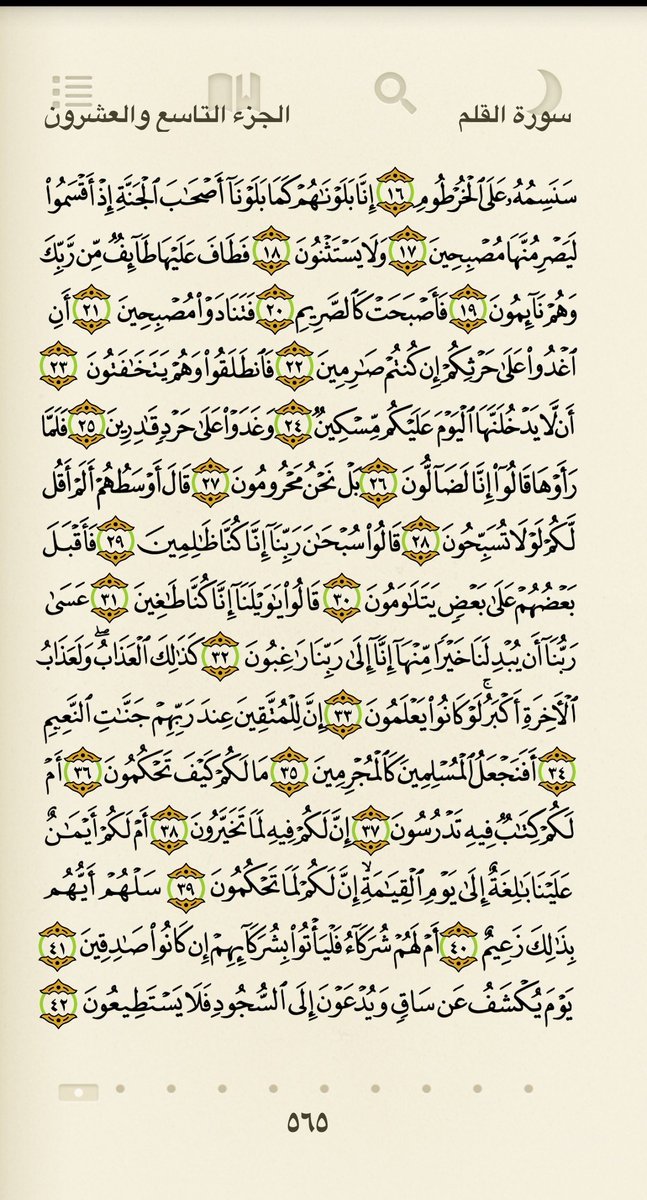 سورة القلم الجزء التاسع والعشرون
سَنَسِمُهُۥ عَلَى ٱلْخُرْطُومِ ١٦ إِنَّا بَلَوْنَٰهُمْ كَمَا بَلَوْنَآ أَصْحَٰبَ ٱلْجَنَّةِ إِذْ أَقْسَمُوا۟
لَيَصْرِمُنَّهَا مُصْبِحِينَ ١٧ وَلَا يَسْتَثْنُونَ ١٨ فَطَافَ عَلَيْهَا طَآئِفٌ مِّن رَّبِّكَ
وَهُمْ نَآئِمُونَ ١٩ فَأَصْبَحَتْ كَٱلصَّرِيمِ ٢٠ فَتَنَادَوْا۟ مُصْبِحِينَ ٢١ أَنِ
ٱغْدُوا۟ عَلَىٰ حَرْثِكُمْ إِن كُنتُمْ صَٰرِمِينَ ٢٢ فَٱنطَلَقُوا۟ وَهُمْ يَتَخَٰفَتُونَ ٢٣
أَن لَّا يَدْخُلَنَّهَا ٱلْيَوْمَ عَلَيْكُم مِّسْكِينٌ ٢٤ وَغَدَوْا۟ عَلَىٰ حَرْدٍ قَٰدِرِينَ ٢٥ فَلَمَّا
رَأَوْهَا قَالُوٓا۟ إِنَّا لَضَآلُّونَ ٢٦ بَلْ نَحْنُ مَحْرُومُونَ ٢٧ قَالَ أَوْسَطُهُمْ أَلَمْ أَقُل
لَّكُمْ لَوْلَا تُسَبِّحُونَ ٢٨ قَالُوا۟ سُبْحَٰنَ رَبِّنَآ إِنَّا كُنَّا ظَٰلِمِينَ ٢٩ فَأَقْبَلَ
بَعْضُهُمْ عَلَىٰ بَعْضٍ يَتَلَٰوَمُونَ ٣٠ قَالُوا۟ يَٰوَيْلَنَآ إِنَّا كُنَّا طَٰغِينَ ٣١ عَسَىٰ
رَبُّنَآ أَن يُبْدِلَنَا خَيْرًا مِّنْهَآ إِنَّآ إِلَىٰ رَبِّنَا رَٰغِبُونَ ٣٢ كَذَٰلِكَ ٱلْعَذَابُ ۖ وَلَعَذَابُ
ٱلْءَاخِرَةِ أَكْبَرُ ۚ لَوْ كَانُوا۟ يَعْلَمُونَ ٣٣ إِنَّ لِلْمُتَّقِينَ عِندَ رَبِّهِمْ جَنَّٰتِ ٱلنَّعِيمِ
٣٤ أَفَنَجْعَلُ ٱلْمُسْلِمِينَ كَٱلْمُجْرِمِينَ ٣٥ مَا لَكُمْ كَيْفَ تَحْكُمُونَ ٣٦ أَمْ
لَكُمْ كِتَٰبٌ فِيهِ تَدْرُسُونَ ٣٧ إِنَّ لَكُمْ فِيهِ لَمَا تَخَيَّرُونَ ٣٨ أَمْ لَكُمْ أَيْمَٰنٌ
عَلَيْنَا بَٰلِغَةٌ إِلَىٰ يَوْمِ ٱلْقِيَٰمَةِ ۙ إِنَّ لَكُمْ لَمَا تَحْكُمُونَ ٣٩ سَلْهُمْ أَيُّهُم
بِذَٰلِكَ زَعِيمٌ ٤٠ أَمْ لَهُمْ شُرَكَآءُ فَلْيَأْتُوا۟ بِشُرَكَآئِهِمْ إِن كَانُوا۟ صَٰدِقِينَ ٤١
يَوْمَ يُكْشَفُ عَن سَاقٍ وَيُدْعَوْنَ إِلَى ٱلسُّجُودِ فَلَا يَسْتَطِيعُونَ ٤٢
٥٦٥